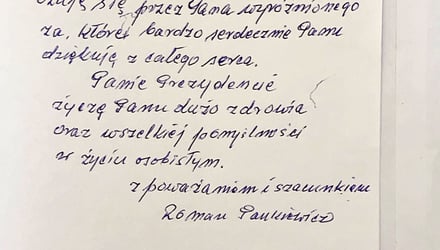 się przez Pana wyróżnionego
za, której bardzo serdecznie Panu
dziękuję z całego serca.
Panie Prezydencie
życzę Panu dużo zdrowia
oraz wszelkiej pomyślności
w życiu osobistym.
z poważaniem i szacunkiem
Roman Pankiewicz